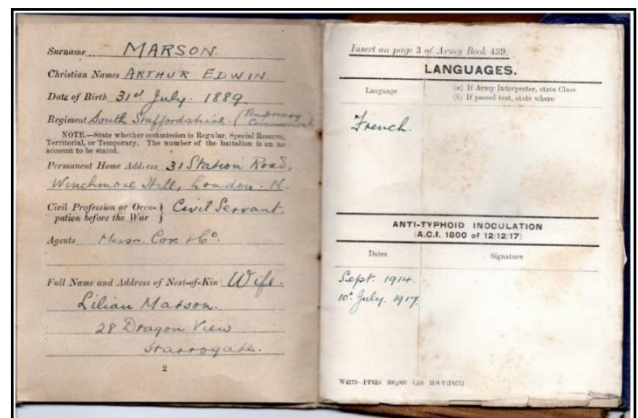 Surname MARSON.
Christian Names ARTHUR EDWIN.
Date of Birth 31st July. 1889.
Regiment South Staffordshire. (Temporary
Commission)
NOTE.—State whether commission is Regular, Special Reserve,
Territorial, or Temporary. The number of the battalion is on no
account to be stated.
Permanent Home Address 31 Station Road,
Winchmore Hill, London. N.
Civil Profession or Occu-
pation before the War } Civil Servant.
Agents Messrs. Cox & Co.
Full Name and Address of Next-of-Kin Wife.
Lilian Marson.
28 Dragon View
Harrogate.
2
Insert on page 3 of Army Book 439.
LANGUAGES.
Language
(a) If Army Interpreter, state Class
(b) If passed test, state where
French.
ANTI-TYPHOID INOCULATION
(A.C.I. 1800 of 12/12/17)
Dates Signature
Sept. 1914.
10th July. 1917.